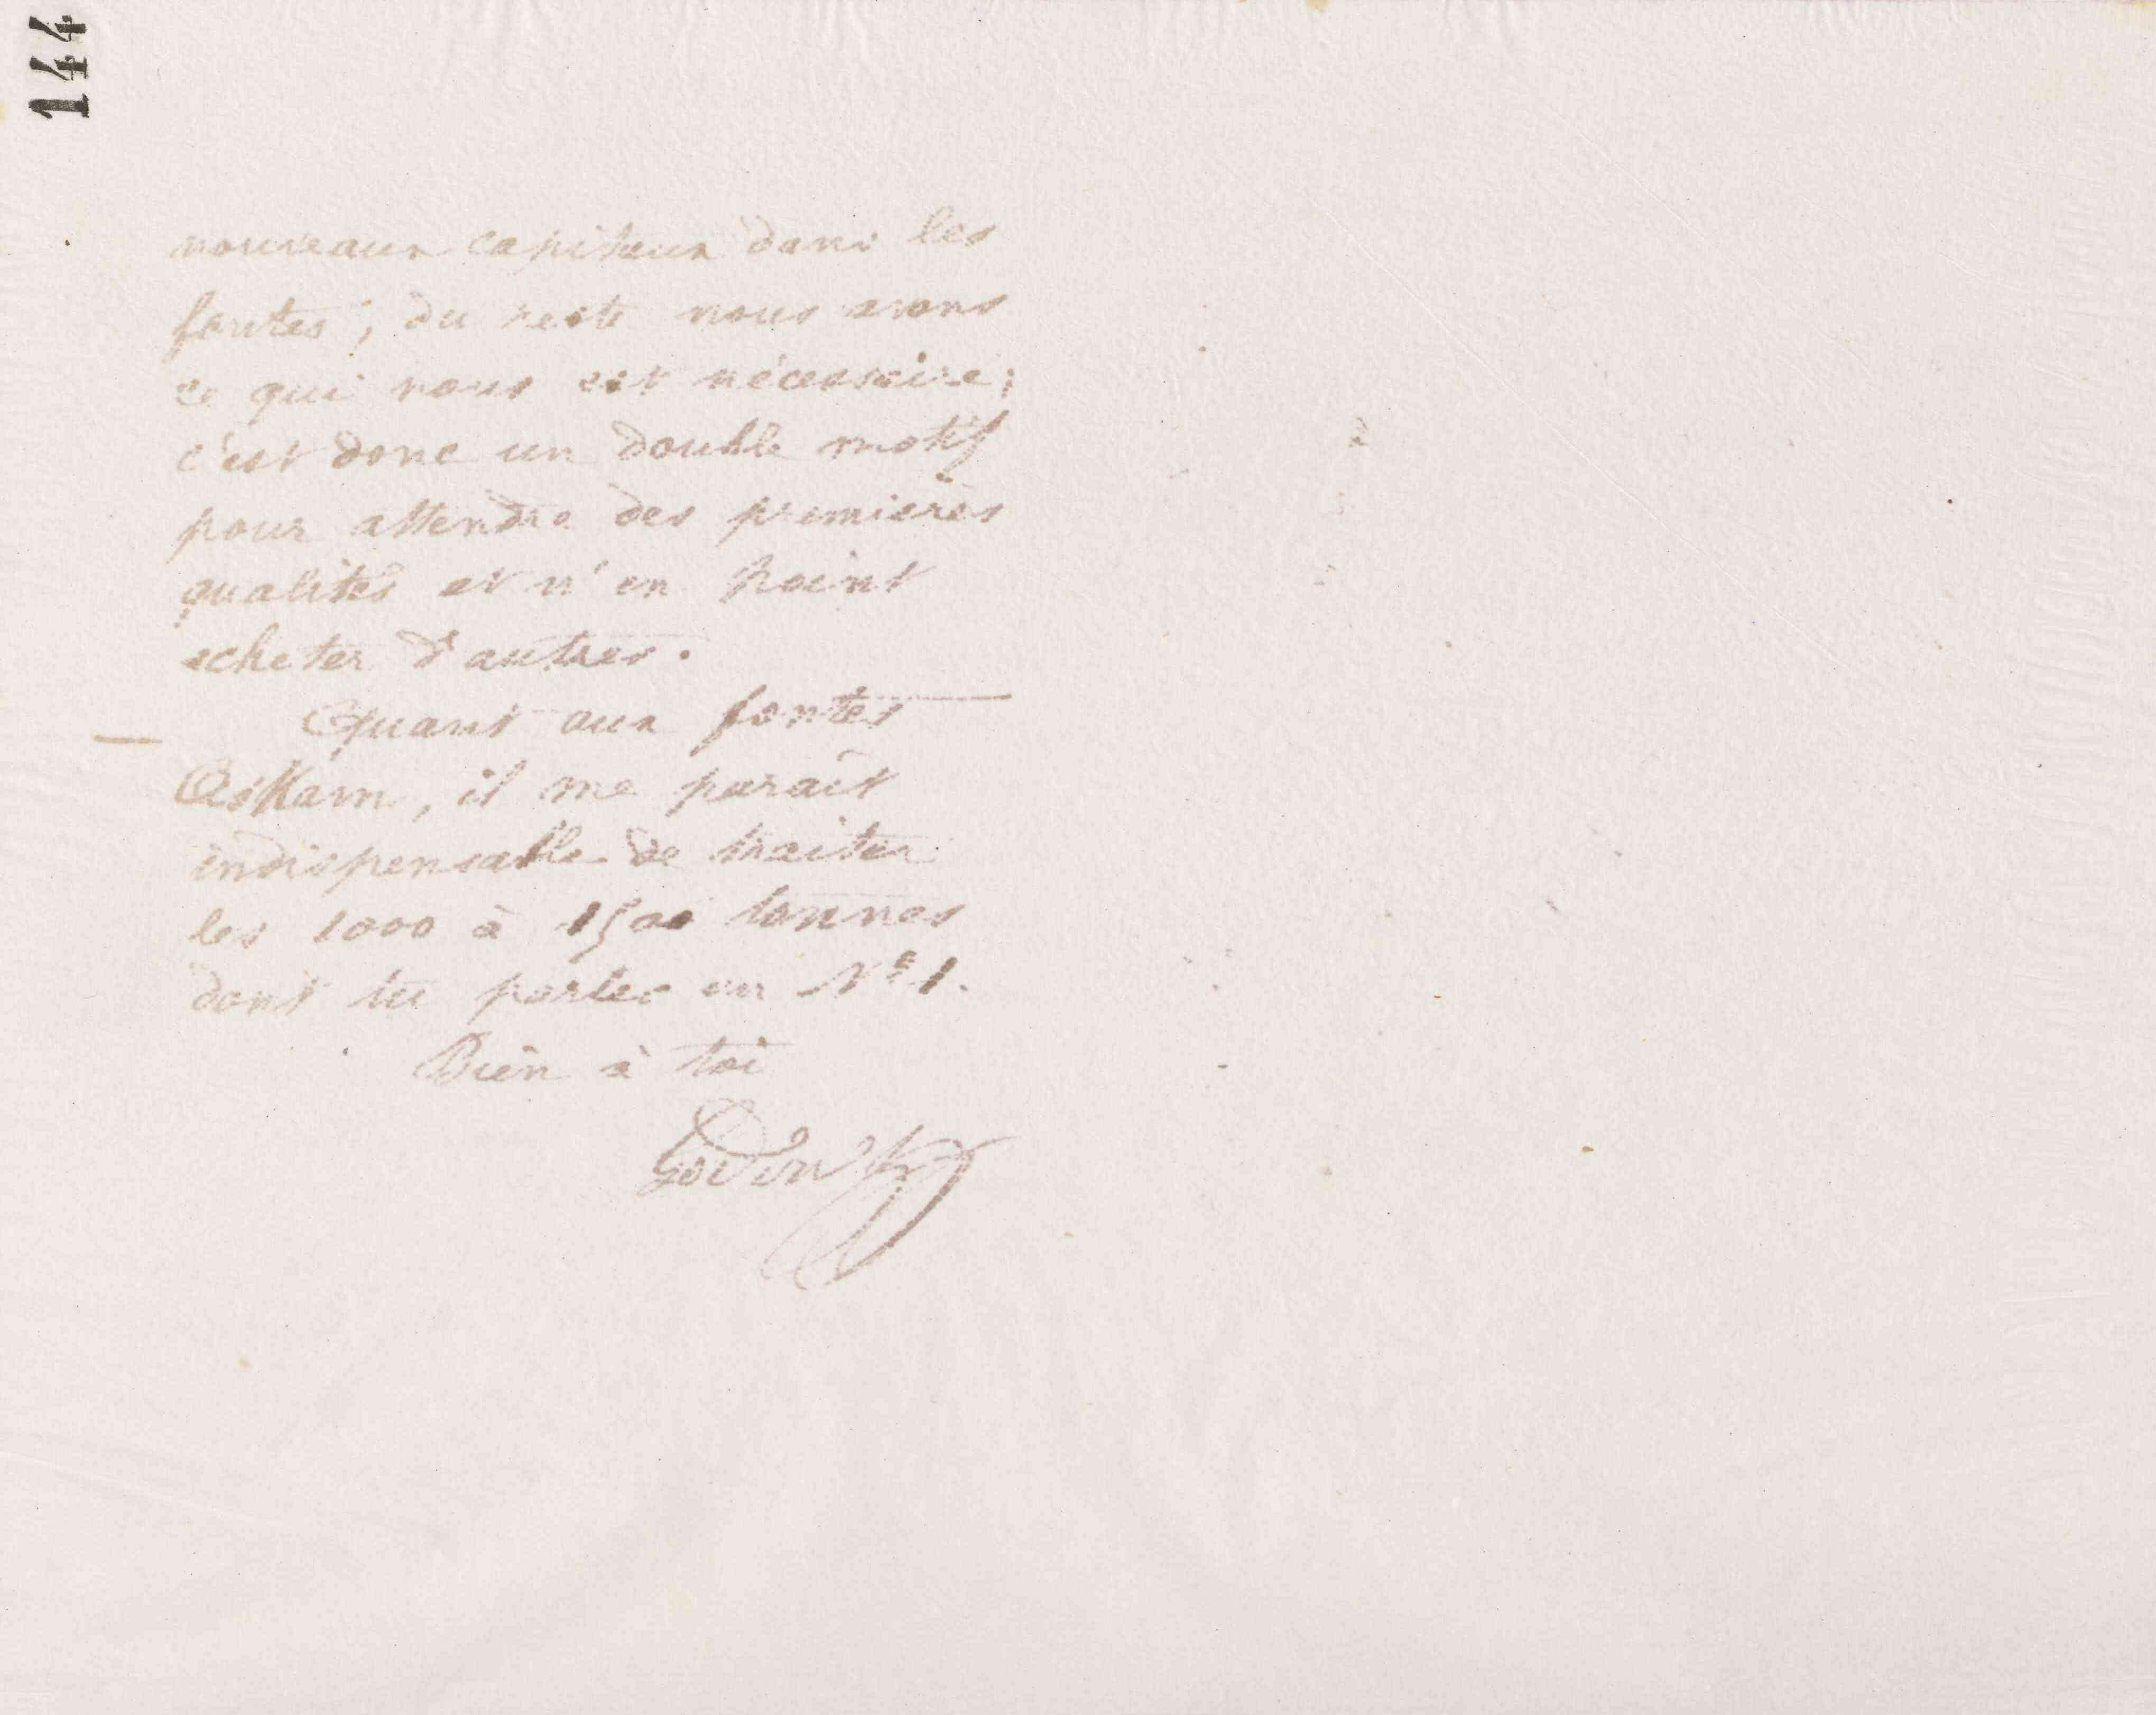 144
nouveaux capitaux dans les
fontes, du reste nous avons
ce qui nous est nécessaire;
c'est donc un double motif
pour attendre des premières
qualités et n'en point
acheter d'autres.
Quant aux fontes
Askam, il me parait
indispensable de traiter
les 1000 à 1500 tonnes
dont tu parles en N° 1.
Bien à toi
Godin